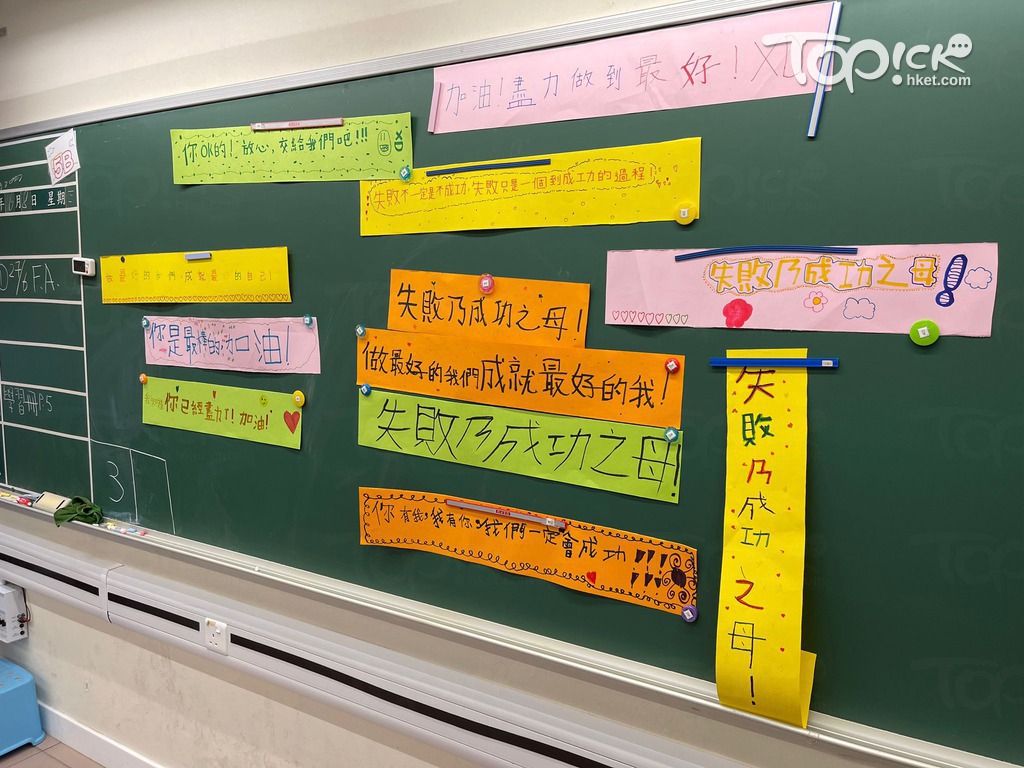 TOPick
hket.com
加油！盡力做到最好！XD
你OK的！放心，交給我們吧!!! XD
5B
失敗不一定是不成功，失敗只是一個到成功的過程！
年6月8日 星期
F.A.
做最好的我們，成就最好的自己！
失敗乃成功之母！
失敗乃成功之母！
你是最棒的，加油！
做最好的我們成就最好的我！
你已經盡力了！加油！
失敗乃成功之母！
學習冊P.5
失敗乃成功之母！
3
你有我，我有你，我們一定會成功!!!!!!